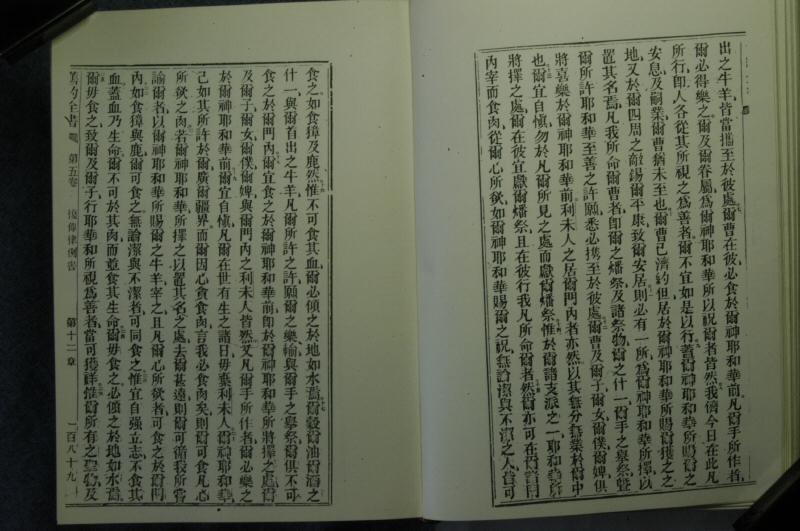 出之牛羊、皆當攜至於彼處、爾曹在彼、必食於爾神耶和華前、凡爾手所作者、
爾必得樂之、爾及爾眷屬、爲爾神耶和華所以祝爾者皆然、我儕今日在此、凡
所行、即人各從其所視之爲善者、爾不宜如是以行、蓋爾神耶和華所賜爾之
安息、及嗣業、爾曹猶未至也、爾曹已濟約但、居於爾神耶和華所賜爾獲之之
地、又於爾四周之敵、錫爾平康、致爾安居、則必有一所、爲爾神耶和華所擇、以
置其名焉、凡我所命爾曹者、即爾之燔祭、及諸祭物、爾之什一、爾手之舉祭、曁
爾所許耶和華至善之許願、悉必攜至於彼處、爾曹及爾子、爾女、爾僕、爾婢、俱
將喜樂於爾神耶和華前、利未人之居爾門內者亦然、以其無分無業於爾中
也、爾宜自愼、勿於凡爾所見之處、而獻爾燔祭、惟於爾諸支派之一、耶和華所
將擇之處、爾在彼宜獻爾燔祭、且在彼行我凡所命爾者、然爾亦可在爾諸門
內、宰而食肉、從爾心所欲、如爾神耶和華賜爾之祝、無論潔與不潔之人、皆可
食之、如食獐及鹿、然惟不可食其血、爾必傾之於地如水焉、爾穀爾油爾酒之
什一、與爾首出之牛羊、凡爾所許之許願、爾之樂輸、與爾手之舉祭、爾俱不可
食之於爾門內、爾宜食之於爾神耶和華前、即於爾神耶和華所將擇之處、爾
及爾子、爾女、爾僕、爾婢、與爾門內之利未人皆然、又凡爾手所作者、爾必樂之
於爾神耶和華前、爾宜自愼、凡爾在世有生之諸日、毋棄利未人、爾神耶和華、
己如其所許於爾、廣爾疆界、而爾因心貪食肉、言我必食肉矣、則爾可食凡心
所欲之肉、若爾神耶和華所擇之以置其名之處、去爾甚遠、則爾可循我所嘗
諭爾者、以爾神耶和華所賜爾之牛羊宰之、且凡爾心所欲者、可食之於爾門
內、如食獐與鹿、爾可食之、無論潔與不潔者、可同食之、惟宜自强立志、不食其
血、蓋血乃生命、爾不可於其肉、而並食其生命、爾毋食之、必傾之於地如水焉、
爾毋食之、致爾及爾子、行耶和華所視爲善者、當可獲祥、惟爾所有之聖物、及
第五卷 復傳律例書 第十二章 一百八十九